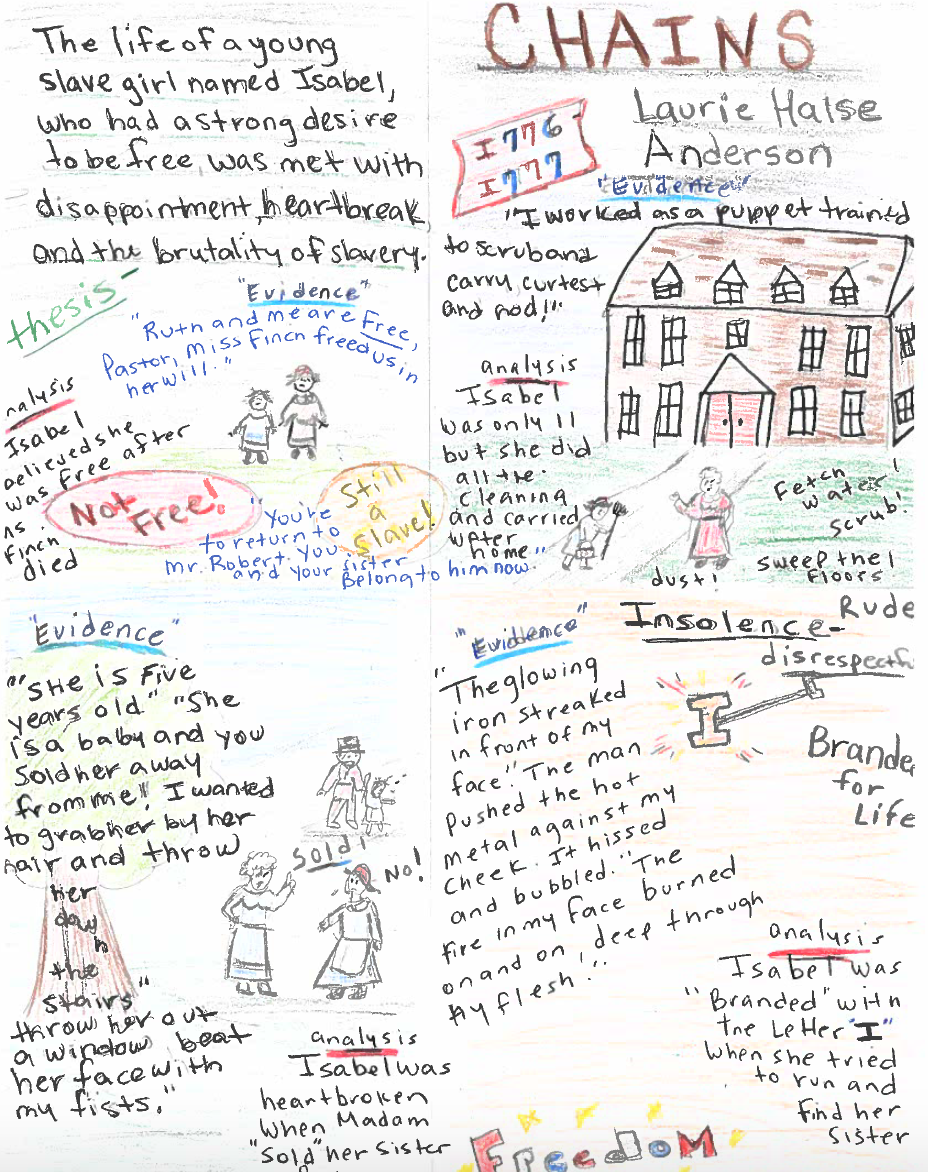 The life of a young
slave girl named Isabel,
who had a strong desire
to be free, was met with
disappointment, heartbreak,
and the brutality of slavery.
thesis-
"Evidence"
"Ruth and me are Free,
Pastor, miss Finch freed us, in
her will."
nalysis
Isabel
believed she
was free after
ns
Finch
died
Not
Free!
Still
a
Slave!
"You're
to return to
mr. Robert. You
and your sister
Belong to him now."
CHAINS
Laurie Halse
Anderson
1776
1777
"Evidence"
"I worked as a puppet trained
to scrub and
carry, curtest
and nod!"
analysis
Isabel
was only 11
but she did
all the
cleaning
and carried
water
home
Fetch
water!
scrub!
sweep the
floors
dust!
"Evidence"
"'She is Five
years old" "She
is a baby and you
Sold her away
from me". I wanted
to grab her by her
hair and throw
her
down
the
stairs"
throw her out
a window, beat
her face with
my fists."
Sold!
No!
analysis
Isabel was
heartbroken
when Madam
"sold" her Sister
"Evidence"
"The glowing
iron streaked
in front of my
face". The man
pushed the hot
metal against my
cheek. It hissed
and bubbled. "The
fire in my face burned
on and on, deep through
my flesh."
Insolence-
Rude
disrespectfu
I
Brande
for
Life
analysis
Isabel was
"Branded" with
the Letter "I"
when she tried
to run and
find her
sister
FreedoM